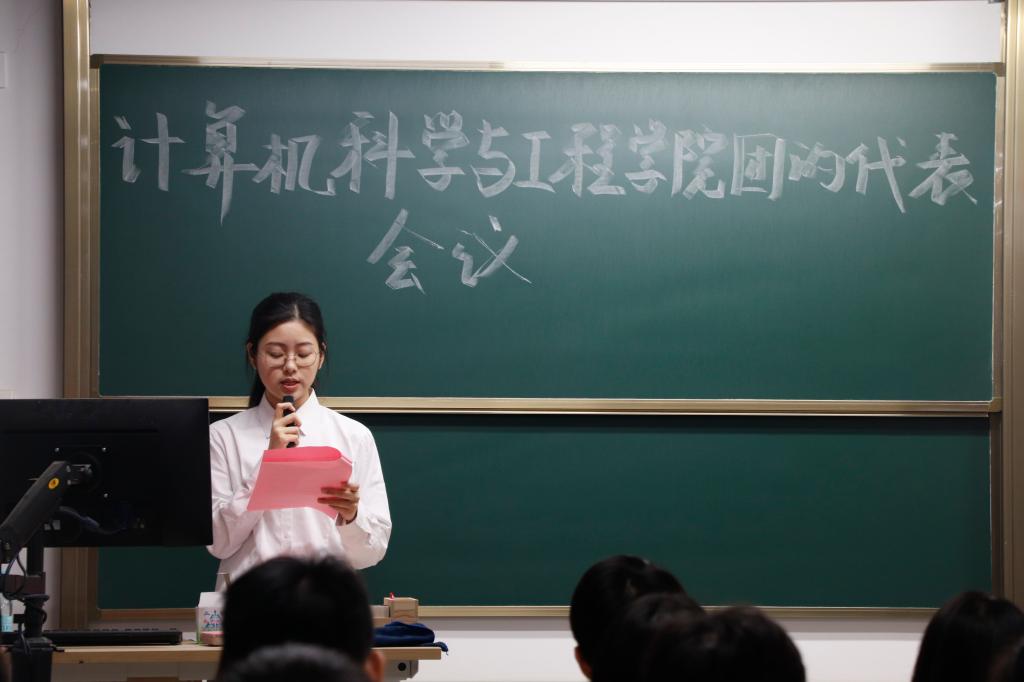 计算机科学与工程学院团的代表
会议